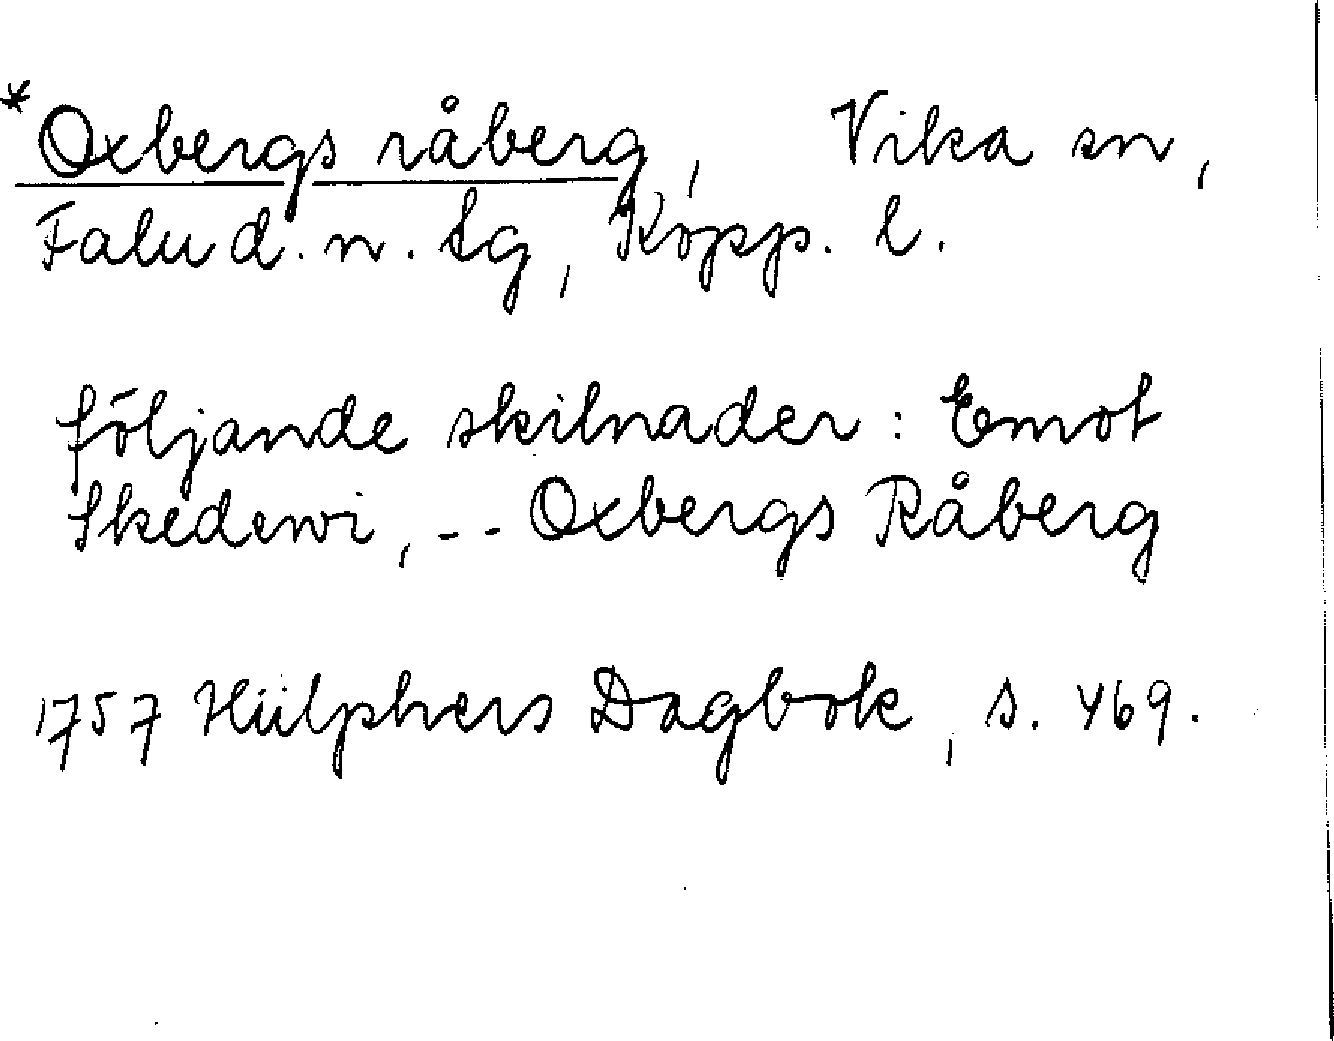 *Oxbergs råberg, Vika sn,
Falu d. n. tg, Kopp. l.
följande skilnader: Emot
Skedewi, -- Oxbergs Råberg
1757 Hülphers Dagbok, s. 469.